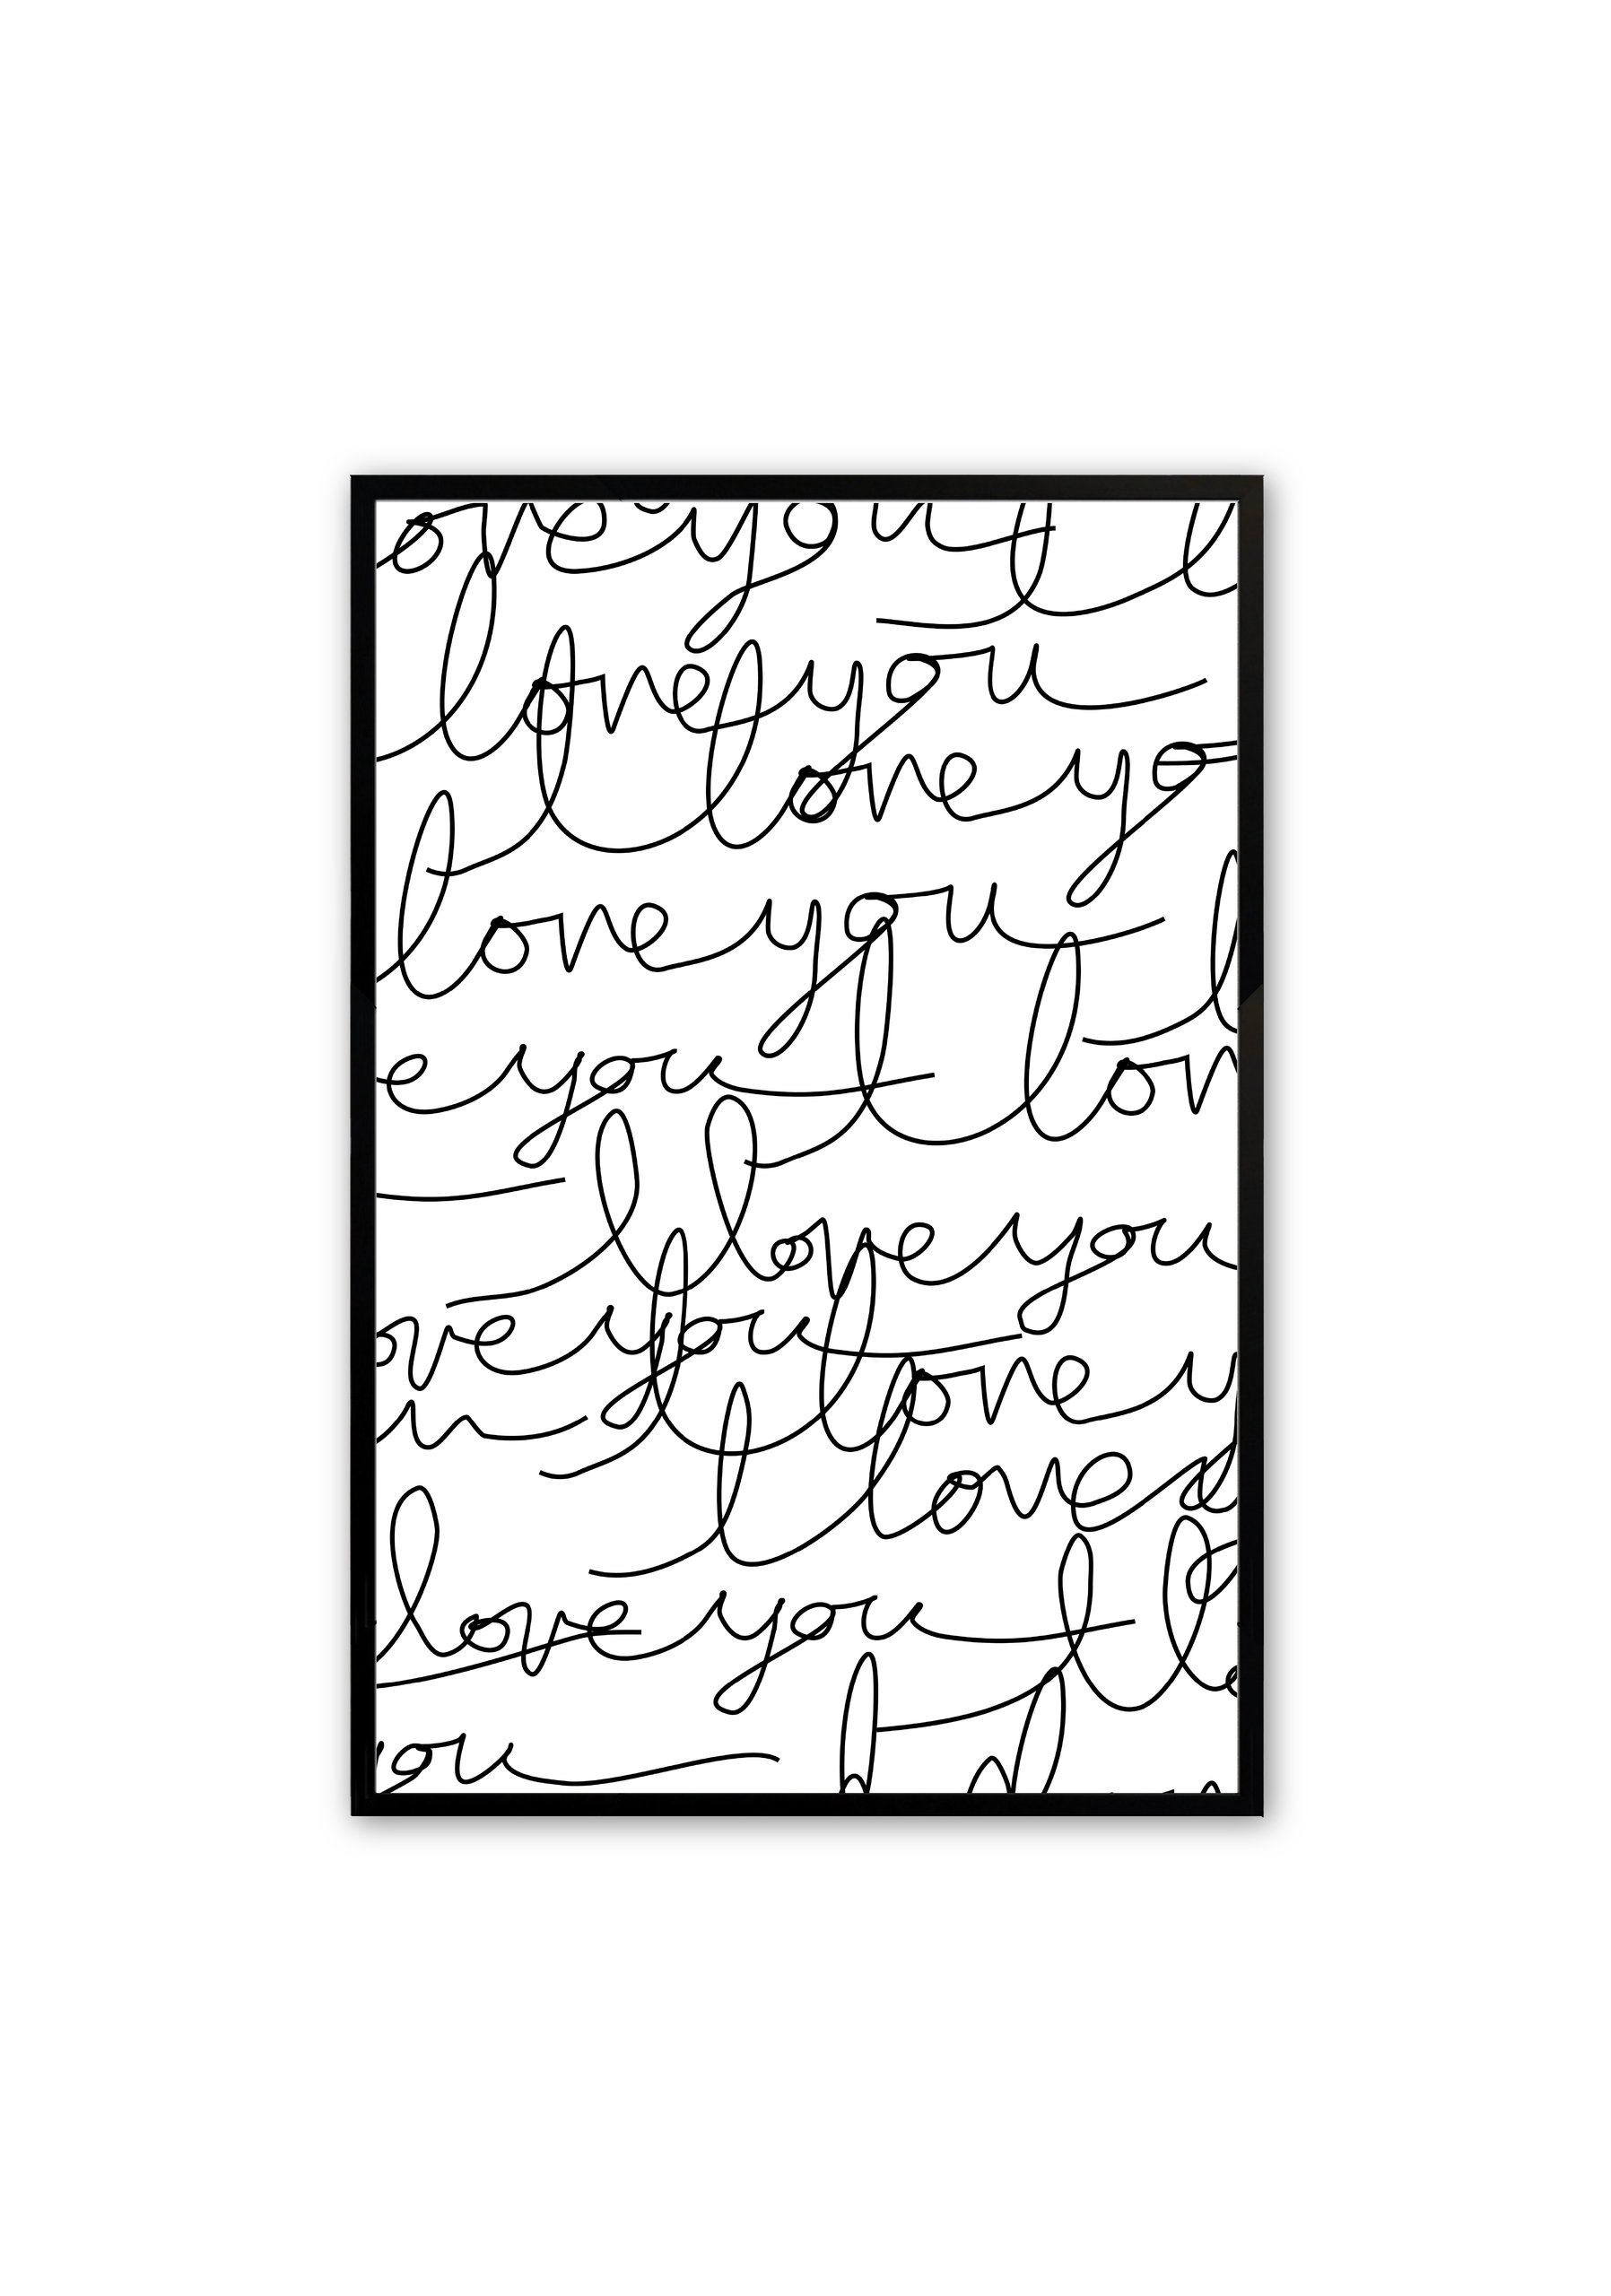 ove you I l
love you
I love yo
love you I
e you I lov
I love you
ove you
I love y
u I love
love you I lo
ou I